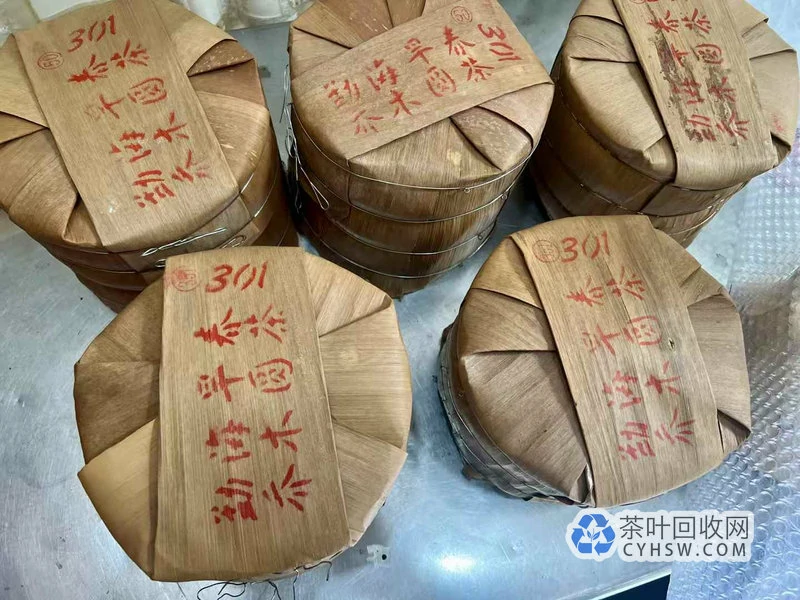 301
勐海早春
乔木圆茶
勐海早春
乔木圆茶
301
勐海早春
乔木圆茶
301
勐海早春
乔木圆茶
301
勐海早春
乔木圆茶
茶叶回收网
CYHSW.COM